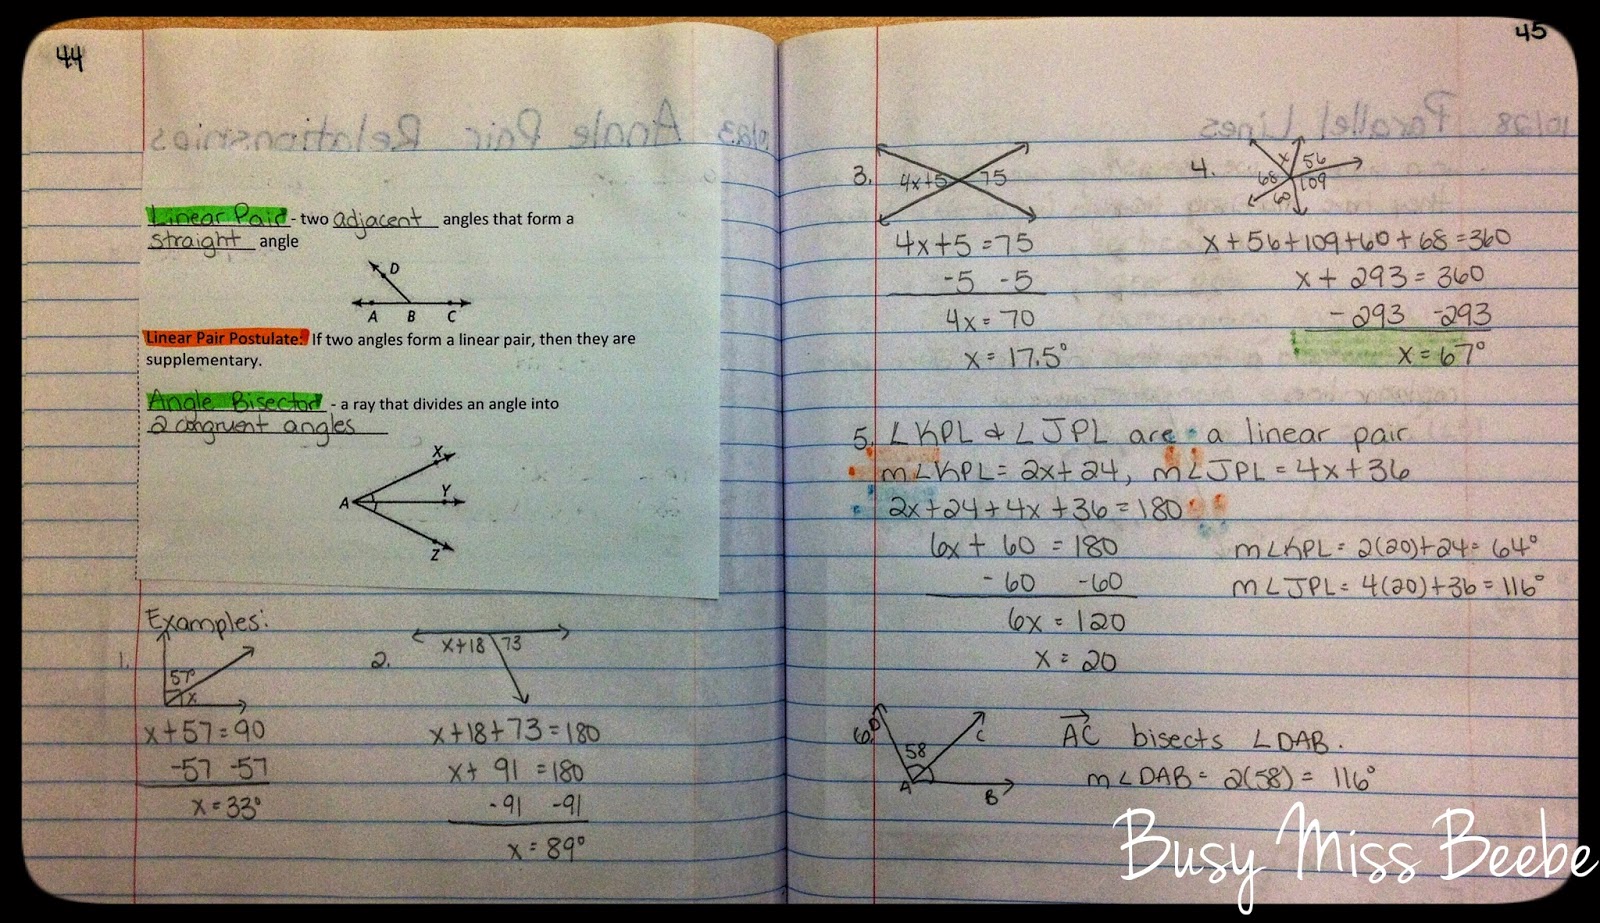 44
Angle Pair Relationships
Linear Pair - two adjacent angles that form a
straight angle
D
A B C
Linear Pair Postulate: If two angles form a linear pair, then they are
supplementary.
Angle Bisector - a ray that divides an angle into
2 congruent angles
X
Y
A
Z
Examples:
1.
57°
x
x+57=90
-57 -57
x=33°
2.
x+18 73
x+18+73=180
x+ 91 =180
-91 -91
x=89°
45
10/28 Parallel Lines
3.
4x+5 75
4x+5=75
-5 -5
4x=70
x=17.5°
4.
x 56
68 109
60
x+56+109+60+68=360
x+293=360
-293 -293
x=67°
5. ∠KPL & ∠JPL are a linear pair
m∠KPL=2x+24, m∠JPL=4x+36
2x+24+4x+36=180
6x+60=180
-60 -60
6x=120
x=20
m∠KPL=2(20)+24=64°
m∠JPL=4(20)+36=116°
6.
D
58
C
A
B
AC bisects ∠DAB.
m∠DAB=2(58)=116°
Busy Miss Beebe